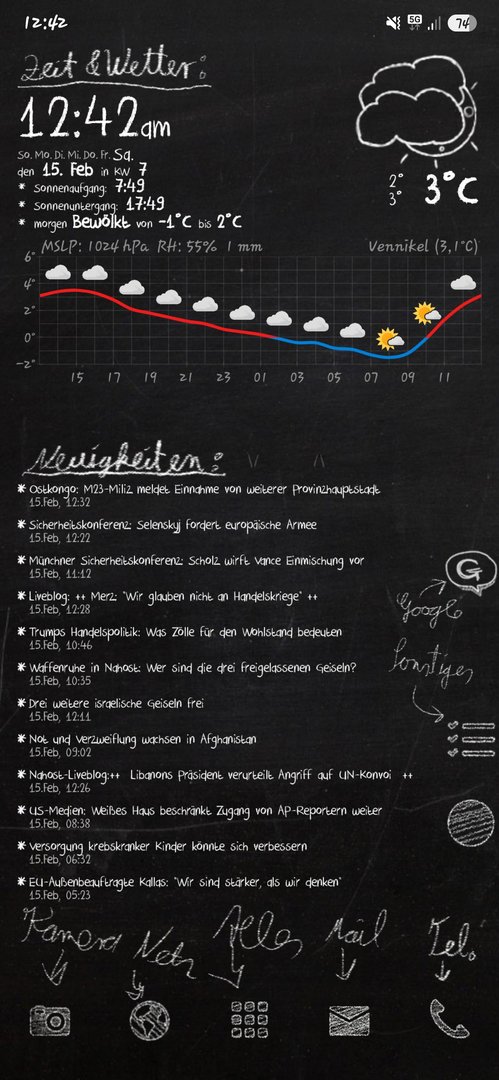 12:42
5G
74
Zeit & Wetter:
12:42am
So. Mo. Di. Mi. Do. Fr. Sa.
den 15. Feb in KW 7
* Sonnenaufgang: 7:49
* Sonnenuntergang: 17:49
* morgen Bewölkt von -1°C bis 2°C
2°
3°
3°C
MSLP: 1024 hPa RH: 55% 1 mm
Vennikel (3,1°C)
6°
4°
2°
0°
-2°
15 17 19 21 23 01 03 05 07 09 11
Neuigkeiten:
* Ostkongo: M23-Miliz meldet Einnahme von weiterer Provinzhauptstadt
15.Feb, 12:32
* Sicherheitskonferenz: Selenskyj fordert europäische Armee
15.Feb, 12:22
* Münchner Sicherheitskonferenz: Scholz wirft Vance Einmischung vor
15.Feb, 11:12
* Liveblog: ++ Merz: "Wir glauben nicht an Handelskriege" ++
15.Feb, 12:28
* Trumps Handelspolitik: Was Zölle für den Wohlstand bedeuten
15.Feb, 10:46
* Waffenruhe in Nahost: Wer sind die drei freigelassenen Geiseln?
15.Feb, 10:35
* Drei weitere israelische Geiseln frei
15.Feb, 12:11
* Not und Verzweiflung wachsen in Afghanistan
15.Feb, 09:02
* Nahost-Liveblog:++ Libanons Präsident verurteilt Angriff auf UN-Konvoi ++
15.Feb, 12:26
* US-Medien: Weißes Haus beschränkt Zugang von AP-Reportern weiter
15.Feb, 08:38
* Versorgung krebskranker Kinder könnte sich verbessern
15.Feb, 06:32
* EU-Außenbeauftragte Kallas: "Wir sind stärker, als wir denken"
15.Feb, 05:23
G
Google
Sonstiges
Kamera Netz Alles Mail Tel.